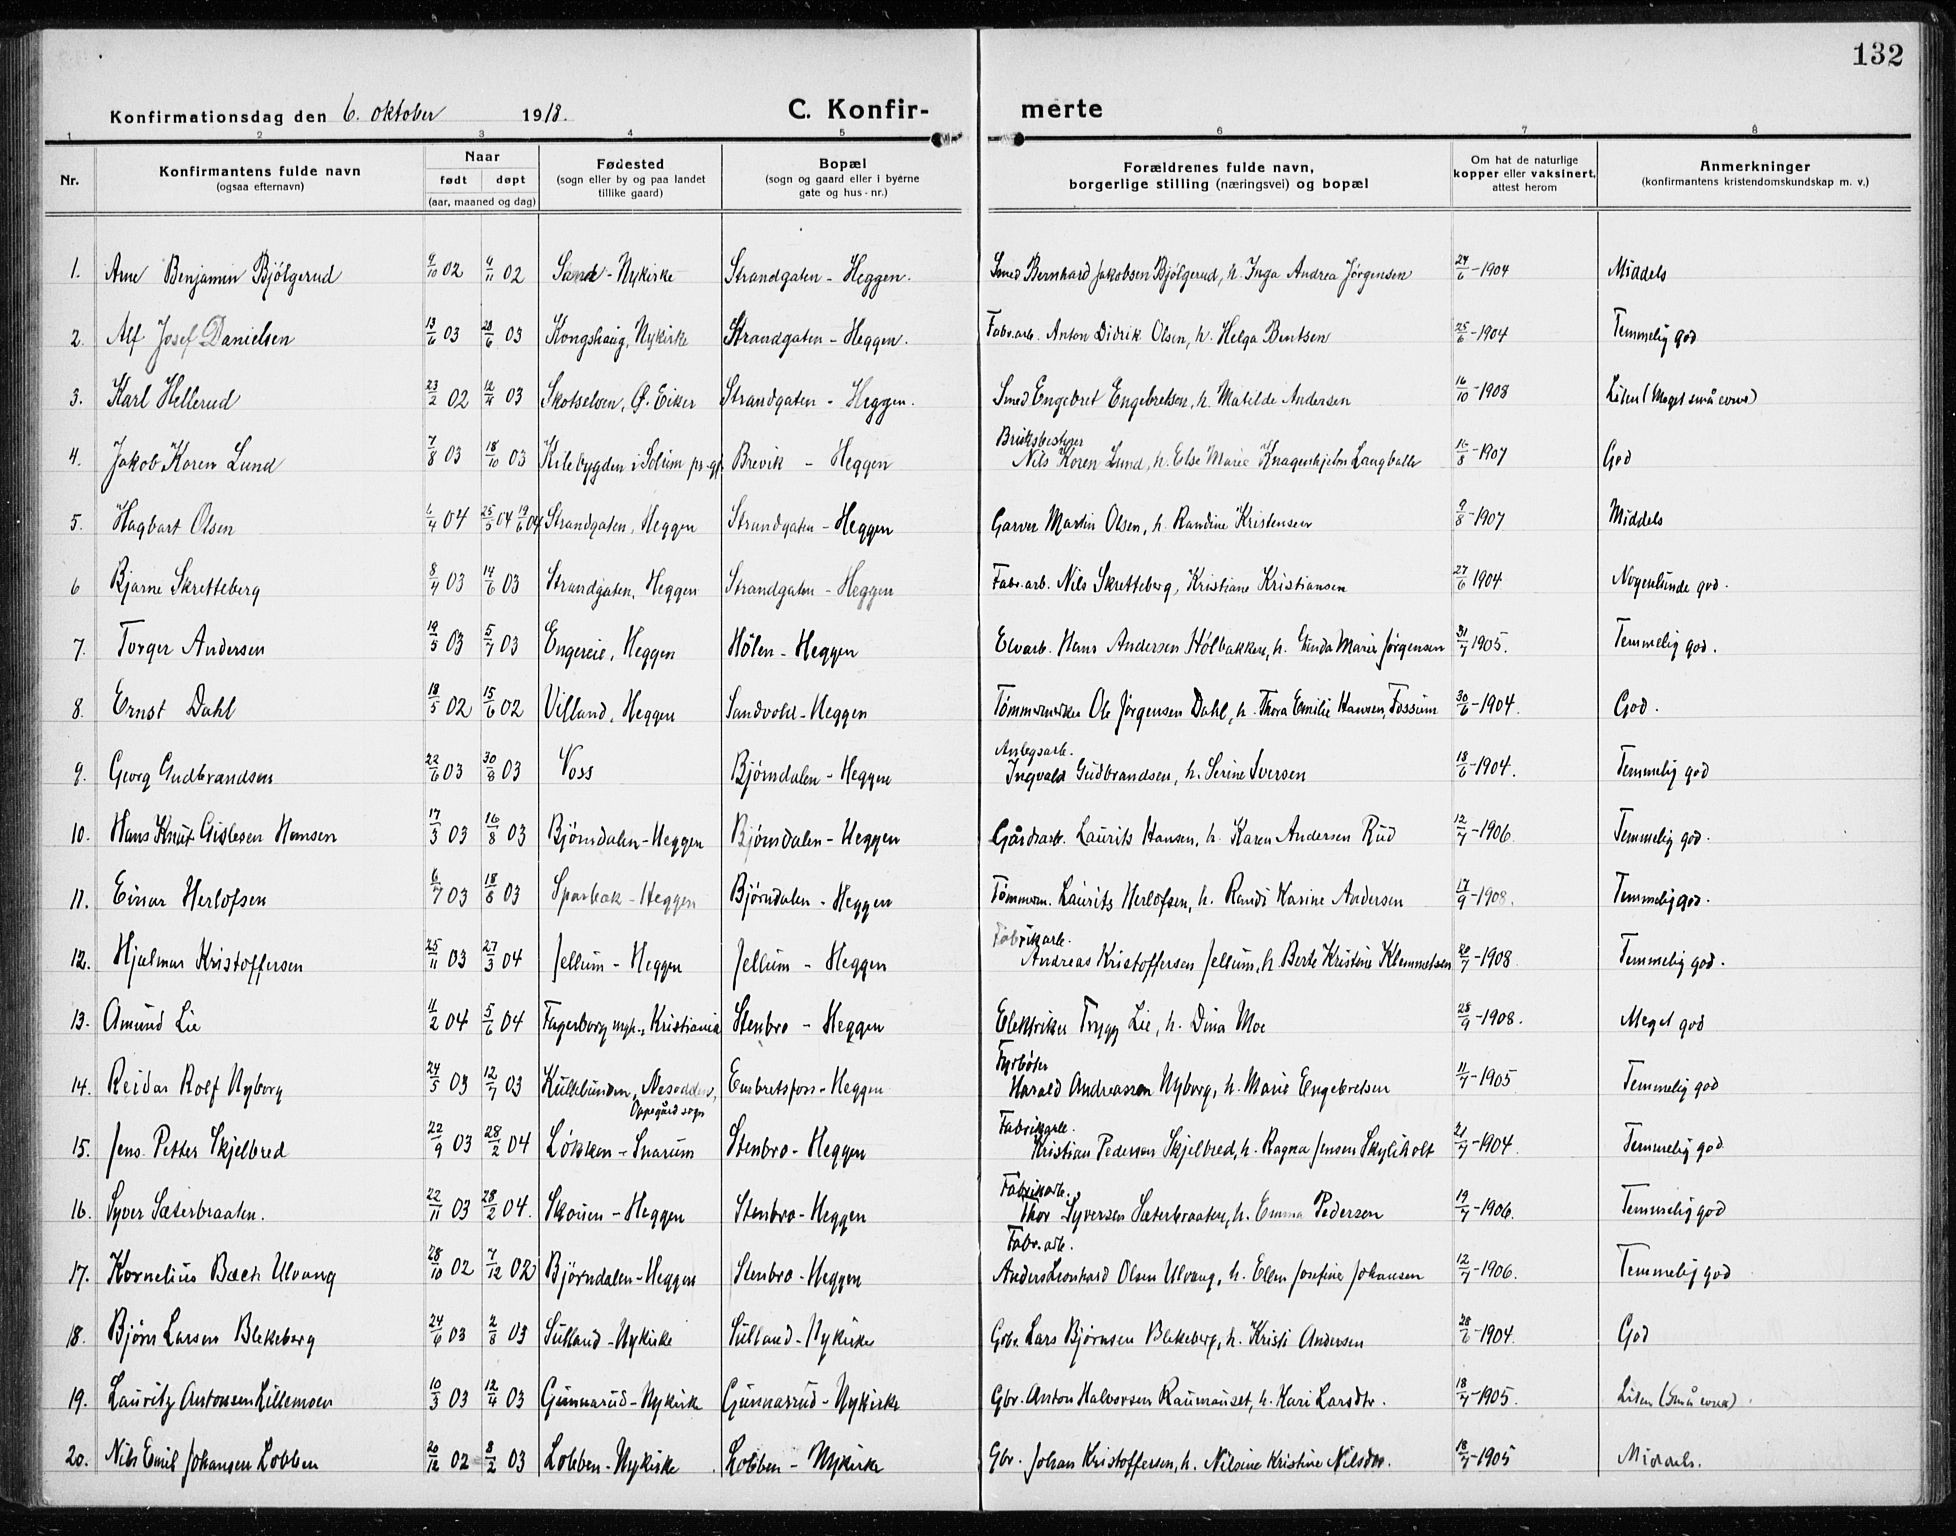 132
Konfirmationsdag den 6. oktober 1918. C. Konfir- merte
1 2 3 4 5 6 7 8
Nr. Konfirmantens fulde navn (ogsaa efternavn) Naar født døpt (aar, maaned og dag) Fødested (sogn eller by og paa landet tillike gaard) Bopæl (sogn og gaard eller i byerne gate og hus-nr.) Forældrenes fulde navn, borgerlige stilling (næringsvei) og bopæl Om hat de naturlige kopper eller vaksinert, attest herom Anmerkninger (konfirmantens kristendomskundskap m. v.)
1. Arne Benjamin Bjölgerud 4/10 02 4/11 02 Sand - Nykirke Strandgaten - Heggen. Smed Bernhard Jakobsen Bjölgerud, h. Inga Andrea Jörgensen 24/6 - 1904 Middels
2. Alf Josef Danielsen 13/6 03 28/6 03 Kongshaug, Nykirke Strandgaten - Heggen. Fabr.arb. Anton Didrik Olsen, h. Helga Bentsen 25/6 - 1904 Temmelig god
3. Karl Hellerud 23/2 02 12/4 03 Skotselven, Ø. Eiker Strandgaten - Heggen. Smed Engebret Engebretsen, h. Matilde Andersen 16/10 - 1908 Liten (Meget små evne)
4. Jakob Koren Lund 7/8 03 18/10 03 Kilebygden i Solum pr.gj. Brevik - Heggen Bruksbestyrer Nils Koren Lund, h. Else Marie Knagenhjelm Langballe 16/8 - 1907 God
5. Hagbart Olsen 1/4 04 25/5 04 19/6 04 Strandgaten, Heggen Strandgaten - Heggen Garver Martin Olsen, h. Randine Kristensen 9/8 - 1907 Middels
6 Bjarne Skretteberg 8/4 03 14/6 03 Strandgaten, Heggen Strandgaten - Heggen Fabr.arb. Nils Skretteberg, Kristiane Kristiansen 27/6 1904 Nogenlunde god.
7. Torger Andersen 19/5 03 5/7 03 Engereie, Heggen Hölen - Heggen Elvarb. Hans Andersen Hölbakken, h. Gunda Marie Jørgensen 31/7 1905. Temmelig god.
8. Ernst Dahl 18/5 02 15/6 02 Villand, Heggen Sandvold - Heggen Tømmermerker Ole Jørgensen Dahl, h. Thora Emilie Hansen, Fossum 30/6 - 1904. God.
9. Georg Gudbrandsen 22/6 03 30/8 03 Voss Bjørndalen - Heggen Anlegsarb. Ingvald Gudbrandsen, h. Serine Iversen 18/6 - 1904. Temmelig god
10. Hans Knut Gislesen Hansen 17/3 03 16/8 03 Bjørndalen - Heggen Bjørndalen - Heggen Gårdsarb. Laurits Hansen, h. Karen Andersen Rud 12/7 - 1906. Temmelig god.
11. Einar Herlofsen 6/7 03 18/8 03 Sparbak - Heggen Bjørndalen - Heggen Tømmerm. Laurits Herlofsen, h. Randi Karine Andersen 17/9 - 1908. Temmelig god.
12. Hjalmar Kristoffersen 25/11 03 27/3 04 Jellum - Heggen Jellum - Heggen Fabrikarb. Andreas Kristoffersen Jellum, h. Berte Kristine Klemmetsen 20/7 - 1908 Temmelig god.
13. Amund Lie 11/2 04 5/6 04 Fagerborg mgh., Kristiania Stenbro - Heggen Elektriker Trygg Lie, h. Dina Moe 28/9 - 1908. Meget god
14. Reidar Rolf Nyborg 24/5 03 12/7 03 Kullebunden, Nesodden, Oppegård sogn Embretsfoss - Heggen Fyrbøter Harald Andreassen Nyborg, h. Marie Engebretsen 11/7 - 1905 Temmelig god
15. Jens Petter Skjelbred 22/9 03 28/2 04 Løkken - Snarum Stenbro - Heggen Fabrikarb. Kristian Pedersen Skjelbred, h. Ragna Jensen Skyliholt 21/7 - 1904. Temmelig god
16. Syver Sæterbraaten. 22/11 03 28/2 04. Skouen - Heggen Stenbro - Heggen Fabrikarb. Thor Syversen Sæterbraaten, h. Emma Pedersen 19/7 - 1906. Temmelig god
17. Kornelius Bæch Ulvang 28/10 02 7/12 02 Bjørndalen - Heggen Stenbro - Heggen Fabr.arb. Anders Leonhard Olsen Ulvang, h. Ellen Josefine Johansen 12/7 - 1906. Temmelig god
18. Bjørn Larsen Blekeberg 24/6 03 2/8 03 Sulland - Nykirke Sulland - Nykirke Gbr. Lars Bjørnsen Blekeberg, h. Kristi Andersen 28/6 - 1904. God
19. Lauritz Antonsen Lillemoen 10/3 03 12/4 03 Gunnarud - Nykirke Gunnarrud - Nykirke Gbr. Anton Halvorsen Raumanset, h. Kari Larsdtr. 18/7 - 1905. Liten (små evner)
20. Nils Emil Johansen Lobben 20/12 02 8/2 03 Lobben - Nykirke Lobben - Nykirke Gbr. Johan Kristoffersen, h. Nilsine Kristine Nilsdtr. 18/7 - 1905 Middels.